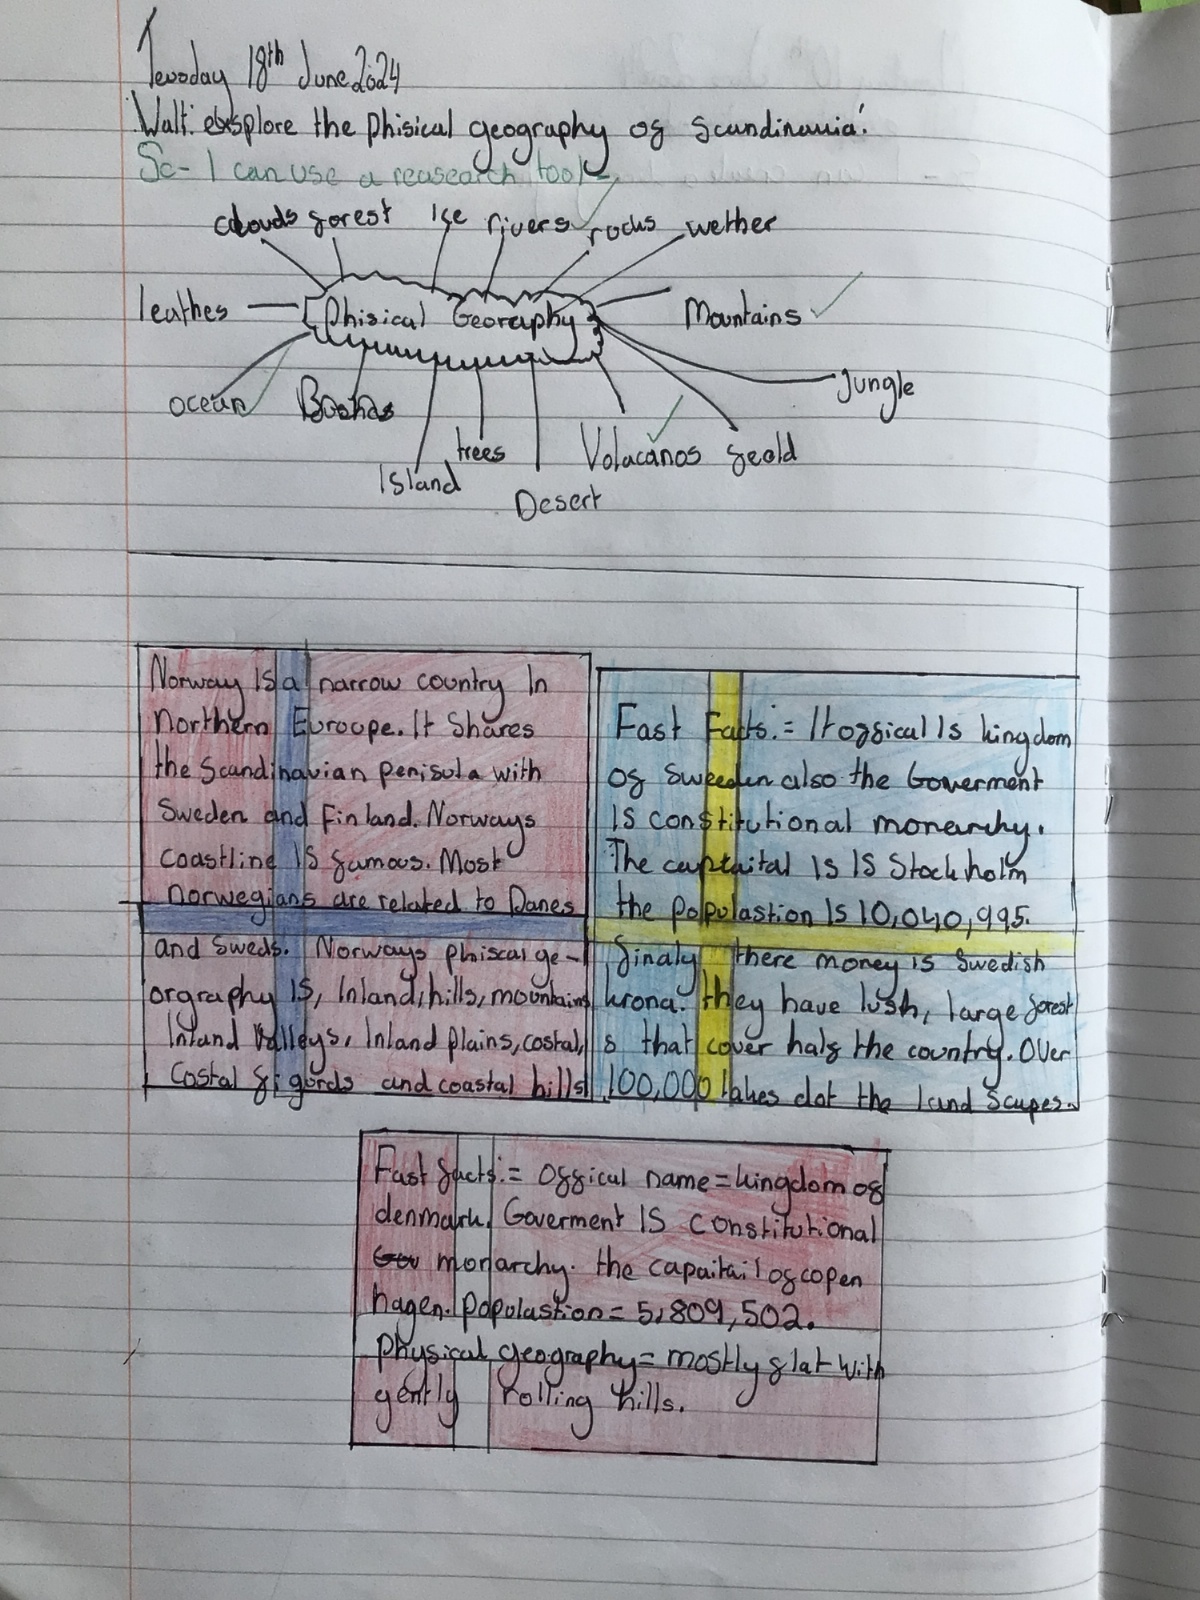 Tuesday 18th June 2024
Walt: exsplore the Phisical geography of Scandinavia.
Sc- I can use a reasearch tool
clouds forest Ice rivers rocks wether
leathes Phisical Georaphy Mountains
ocean Jungle
Island trees Volacanos feald
Desert
Norway Is a narrow country In
northern Euroope. It Shares
the Scandinavian penisula with
Sweden and Finland. Norways
coastline IS famous. Most
norwegians are related to Danes
and Sweds. Norways phiscal ge-
orgraphy IS, Inland, hills, mountains
Inland Valleys, Inland plains, costal,
costal figords and coastal hills
Fast Facts:= It offical Is kingdom
of Sweeden also the Goverment
IS constitutional monarchy.
The captaital IS IS Stockholm
the populastion IS 10,040,995.
finaly there money is Swedish
krona. they have lush, large forest
s that cover half the country. Over
100,000 lakes dot the land Scapes.
Fast facts:= Offical name = kingdom of
denmark. Goverment IS constitutional
monarchy. the capaitail of copen
hagen. populastion = 5,809,502.
physical geography = mostly flat with
gently rolling hills.